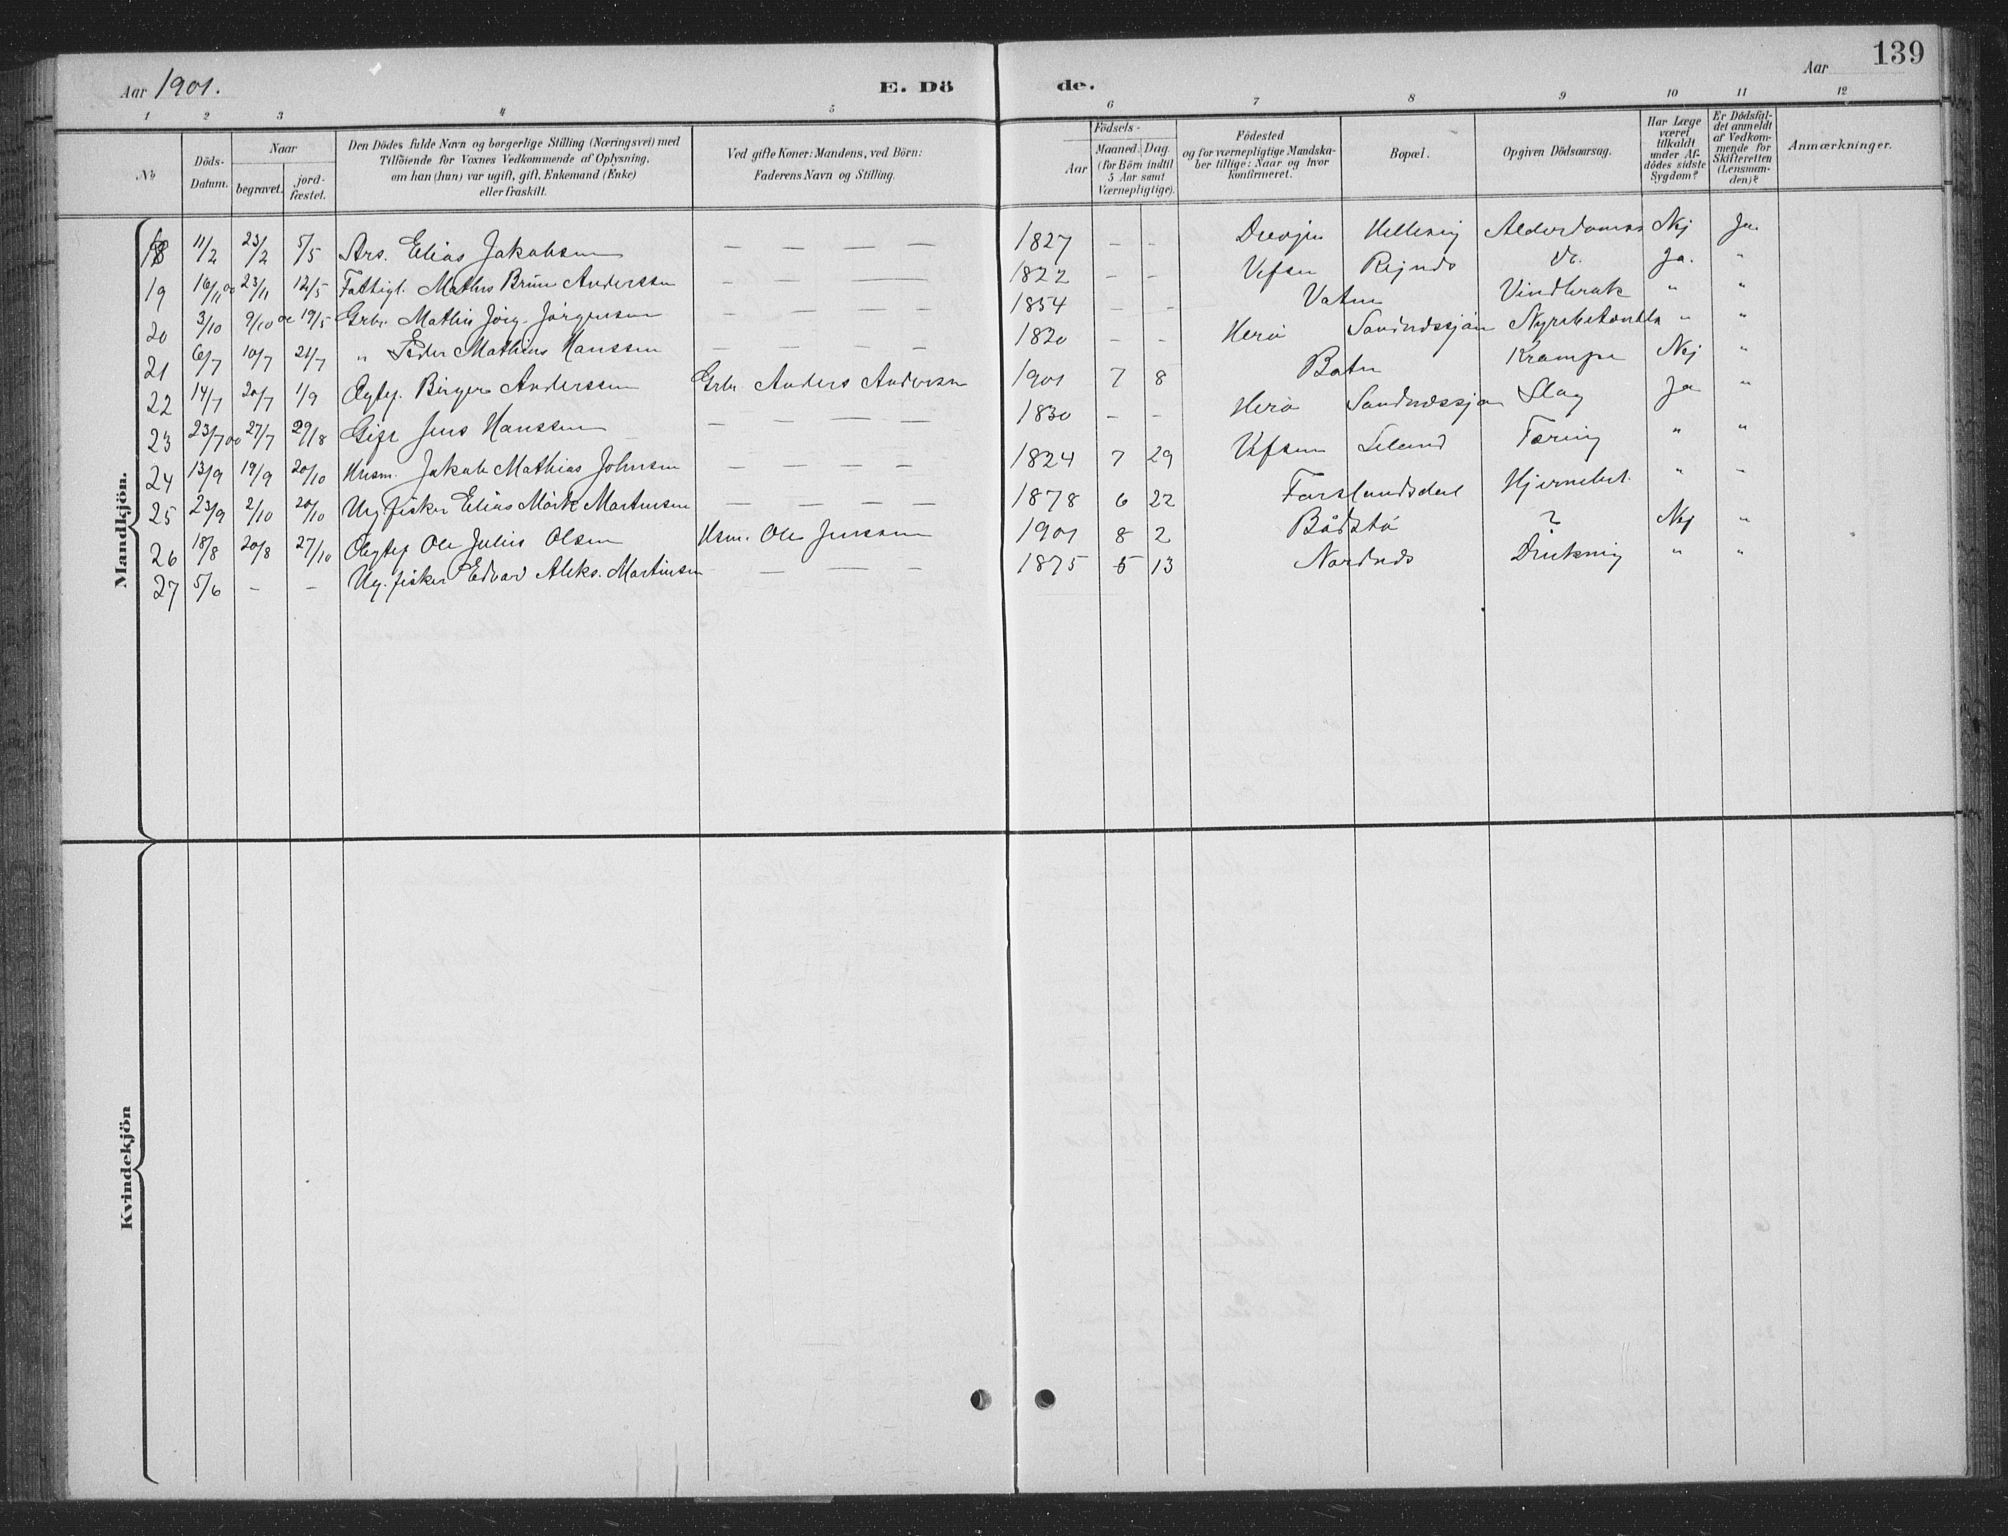 139
Aar 1901.
E. Dö
de.
Aar
1 2 3 4 5 6 7 8 9 10 11 12
No
Döds-Datum.
Naar
begravet.
jord-fæstet.
Den Dödes fulde Navn og borgerlige Stilling (Næringsvei) med
Tilföiende for Voxnes Vedkommende af Oplysning,
om han (hun) var ugift, gift, Enkemand (Enke)
eller fraskilt.
Ved gifte Koner: Mandens, ved Börn:
Faderens Navn og Stilling.
Födsels-
Aar
Maaned. Dag.
(for Börn indtil
5 Aar samt
Værnepligtige).
Födested
og for værnepligtige Mandska-
ber tillige: Naar og hvor
konfirmeret.
Bopæl.
Opgiven Dödsaarsag.
Har Læge
været
tilkaldt
under Af-
dödes sidste
Sygdom?
Er Dödsfal-
det anmeldt
af Vedkom-
mende for
Skifteretten
(Lensman-
den)?
Anmærkninger.
Mandkjön.
18 11/2 23/2 5/5 Ars. Elias Jakobsen — — — — 1827 - - Drevjen Hellesvig Alderdomss Nej Ja
19 16/11 00 23/11 12/5 Fattigl. Mathis Brun Anderssen — — — — 1822 - - Vefsen Rejnås Do. Ja. "
20 3/10 9/10 00 19/5 Grbr. Mathis Jörg. Jörgensen — — — — 1854 - - Vatne Vindbrak " "
21 6/7 10/7 21/7 " Peder Mathias Hanssen — — — — 1820 - - Herö Sandnæssjöen " "
22 14/7 20/7 1/9 Ægtep. Birger Anderssen Grbr. Anders Andersen 1901 7 8 Batn Krampe Nej "
23 23/7 00 27/7 29/8 Jens Hanssen — — — — 1830 - - Herö Sandnæssjön Slag Ja "
24 13/9 19/9 20/10 Husm. Jakob Mathias Johnsen — — — — 1824 7 29 Vefsen Leland Tæring " "
25 23/9 2/10 20/10 Ug. fisker Elias Mörk Martinsen — — — — 1878 6 22 Forslandsdal Hjernebet. " "
26 18/8 20/8 27/10 Ægtep Ole Julius Olsen Husm. Ole Jenssen 1901 8 2 Bådstö ? Nej "
27 5/6 - - Ug. fisker Edvard Aleks. Martinsen — — — 1875 5 13 Nordnæs Drukning " "
Kvindekjön